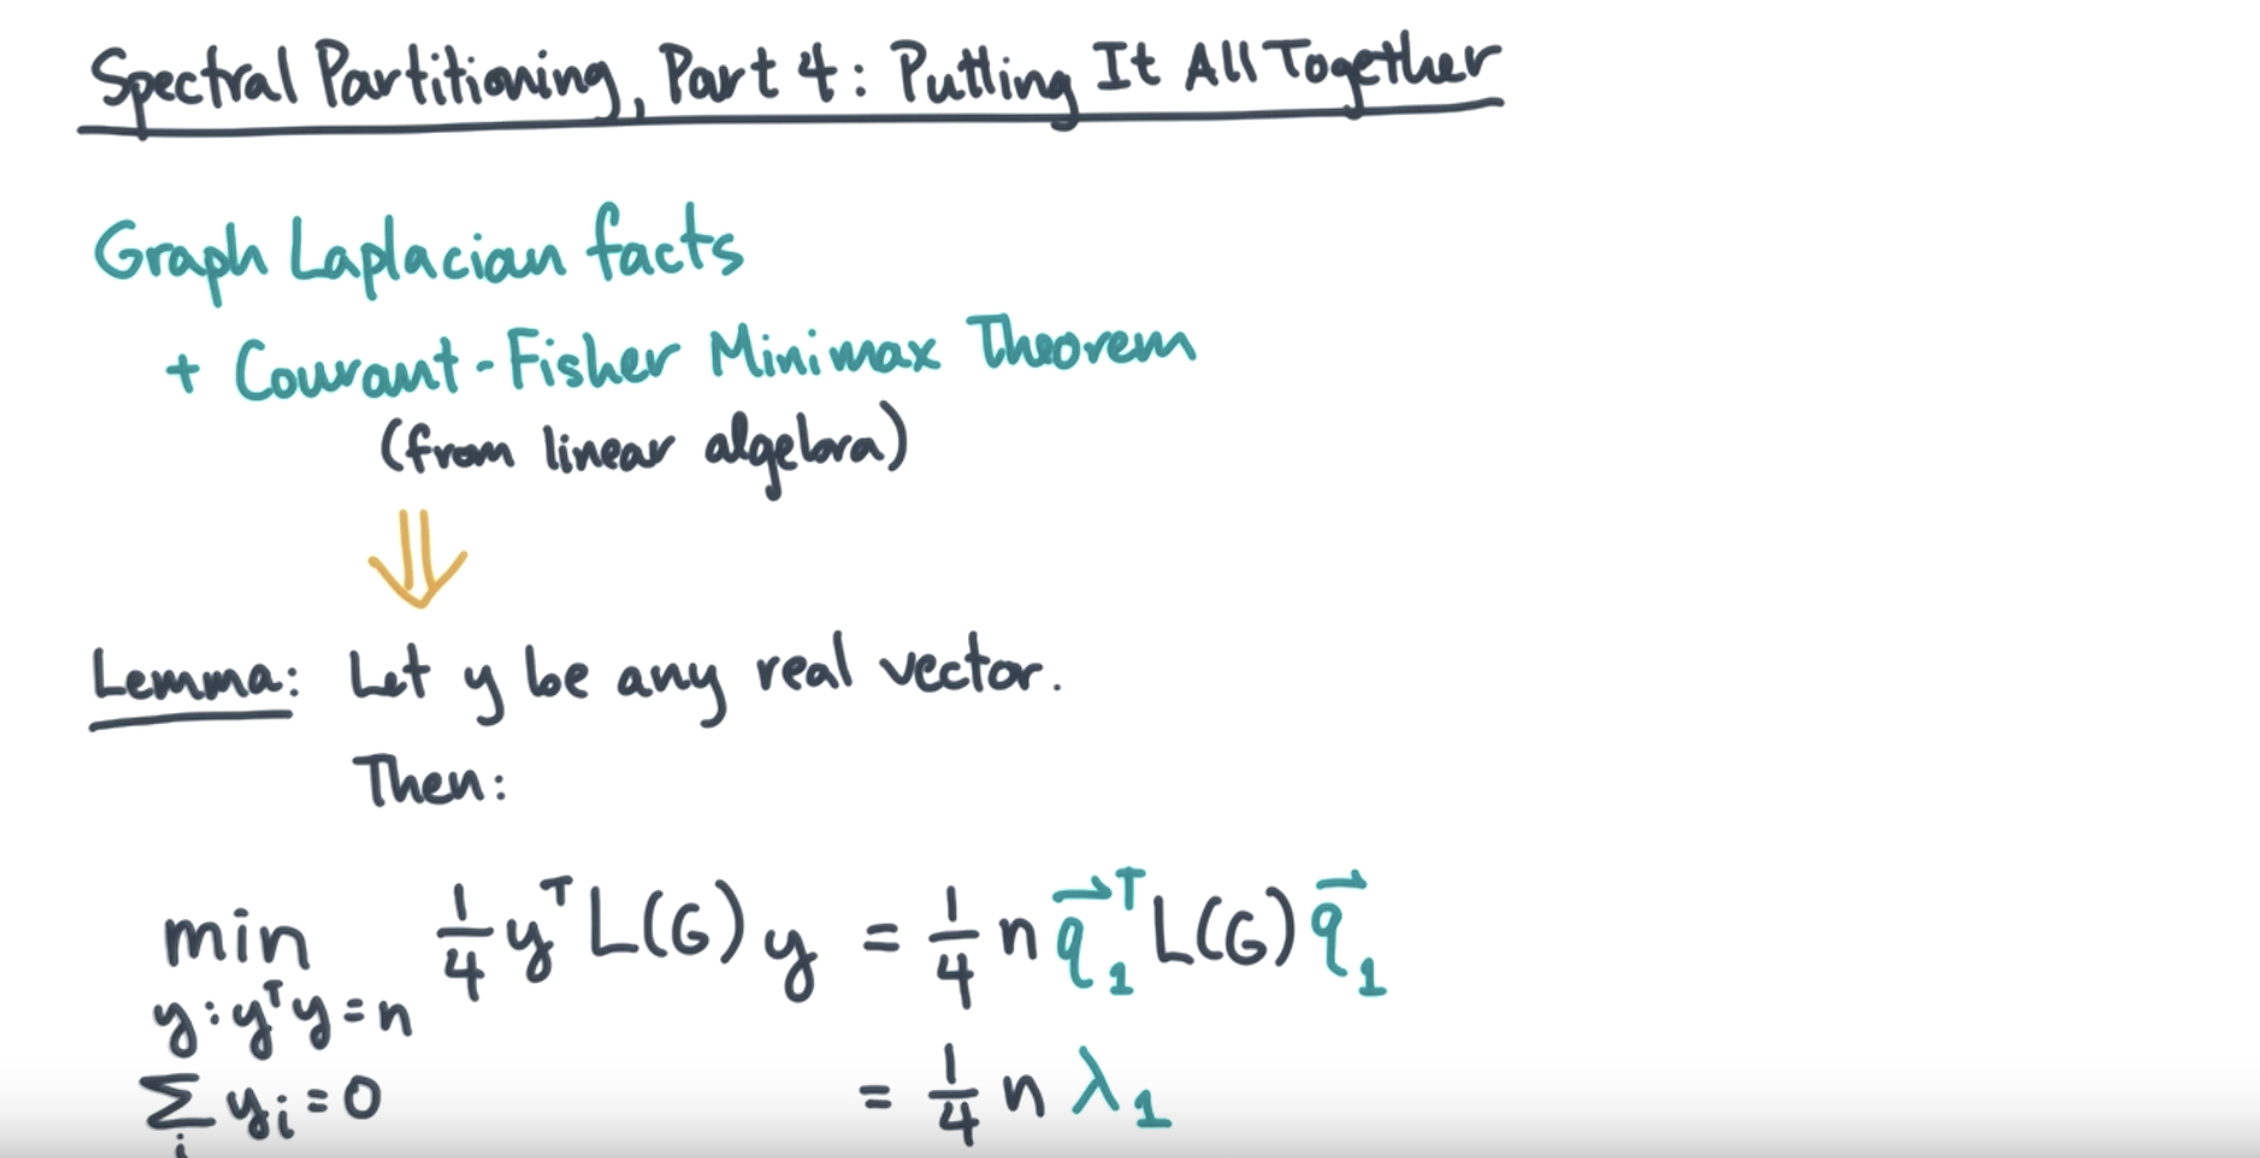 Spectral Partitioning, Part 4: Putting It All Together
Graph Laplacian facts
+ Courant-Fisher Minimax Theorem
(from linear algebra)
⇓
Lemma: Let y be any real vector.
Then:
min 1/4 y^T L(G) y = 1/4 n q⃗_1^T L(G) q⃗_1
y: y^T y = n
∑_i y_i = 0 = 1/4 n λ_1